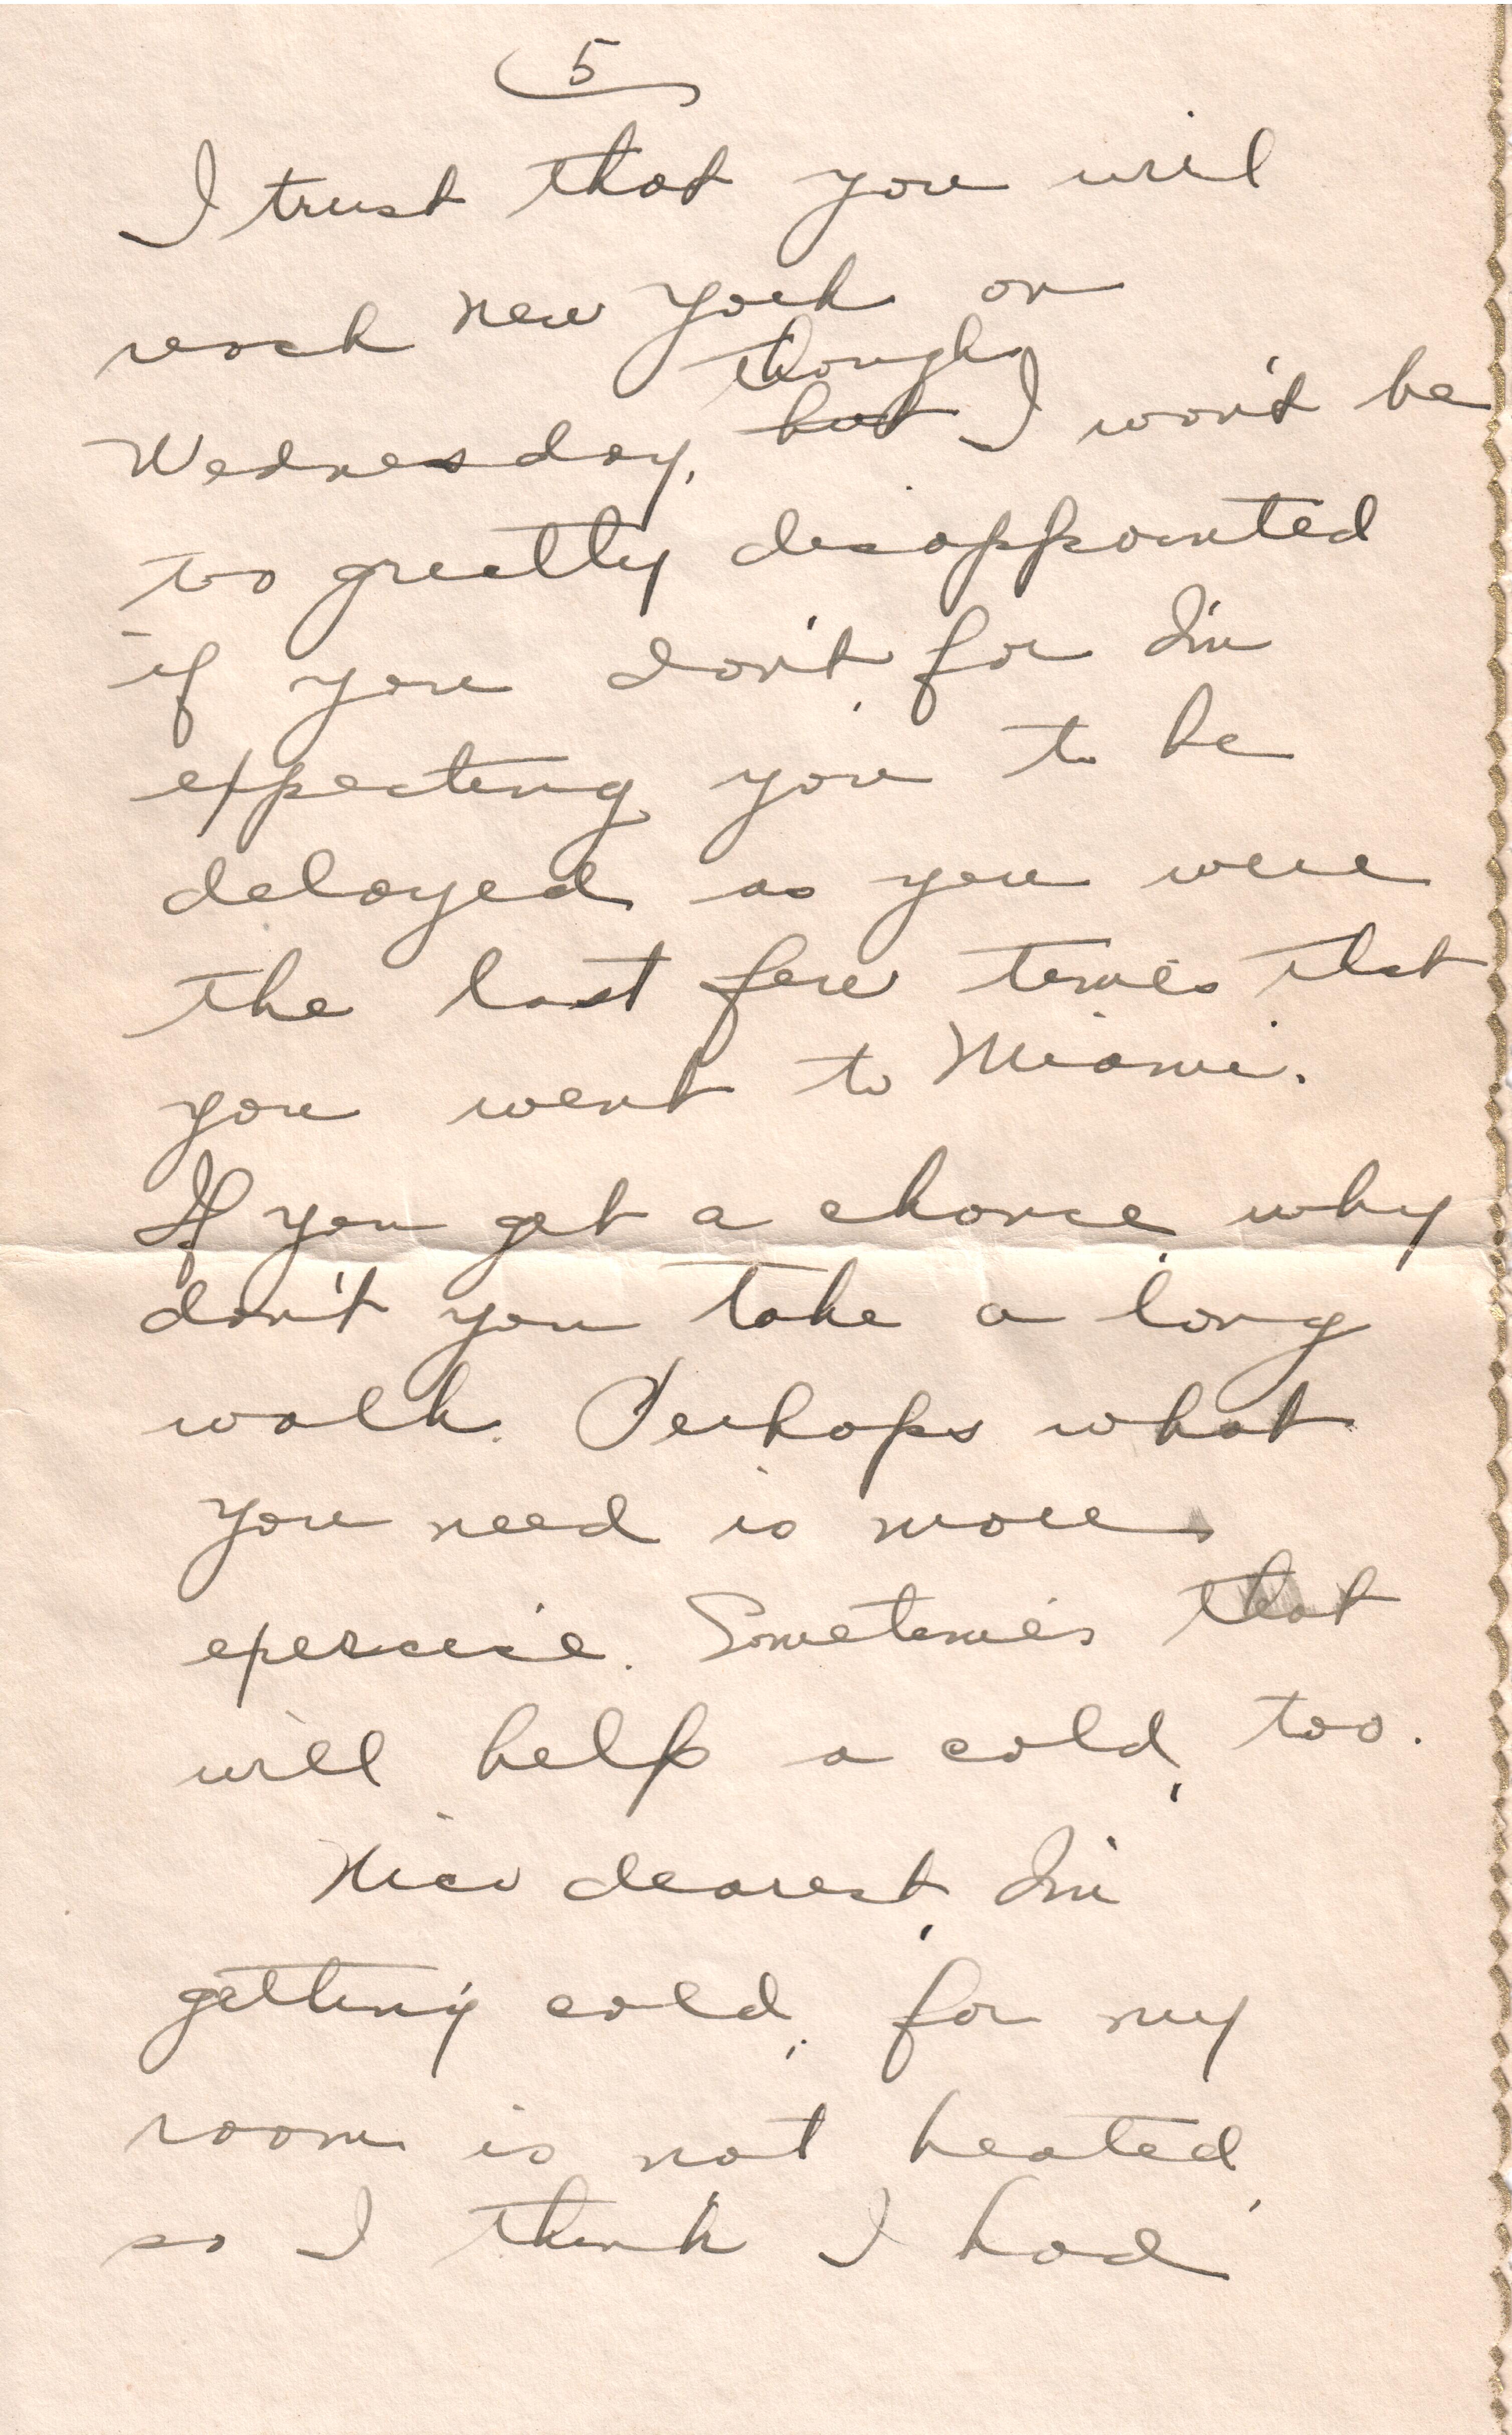 5
I trust that you will
reach New York on
though
Wednesday, but I won't be
too greatly disappointed
if you don't, for I'm
expecting you to be
delayed as you were
the last few times that
you went to Miami.
If you get a chance, why
don't you take a long
walk. Perhaps what
you need is more
exercise. Sometimes that
will help a cold, too.
dearest, I'm
getting cold, for my
room is not heated,
so I think I had